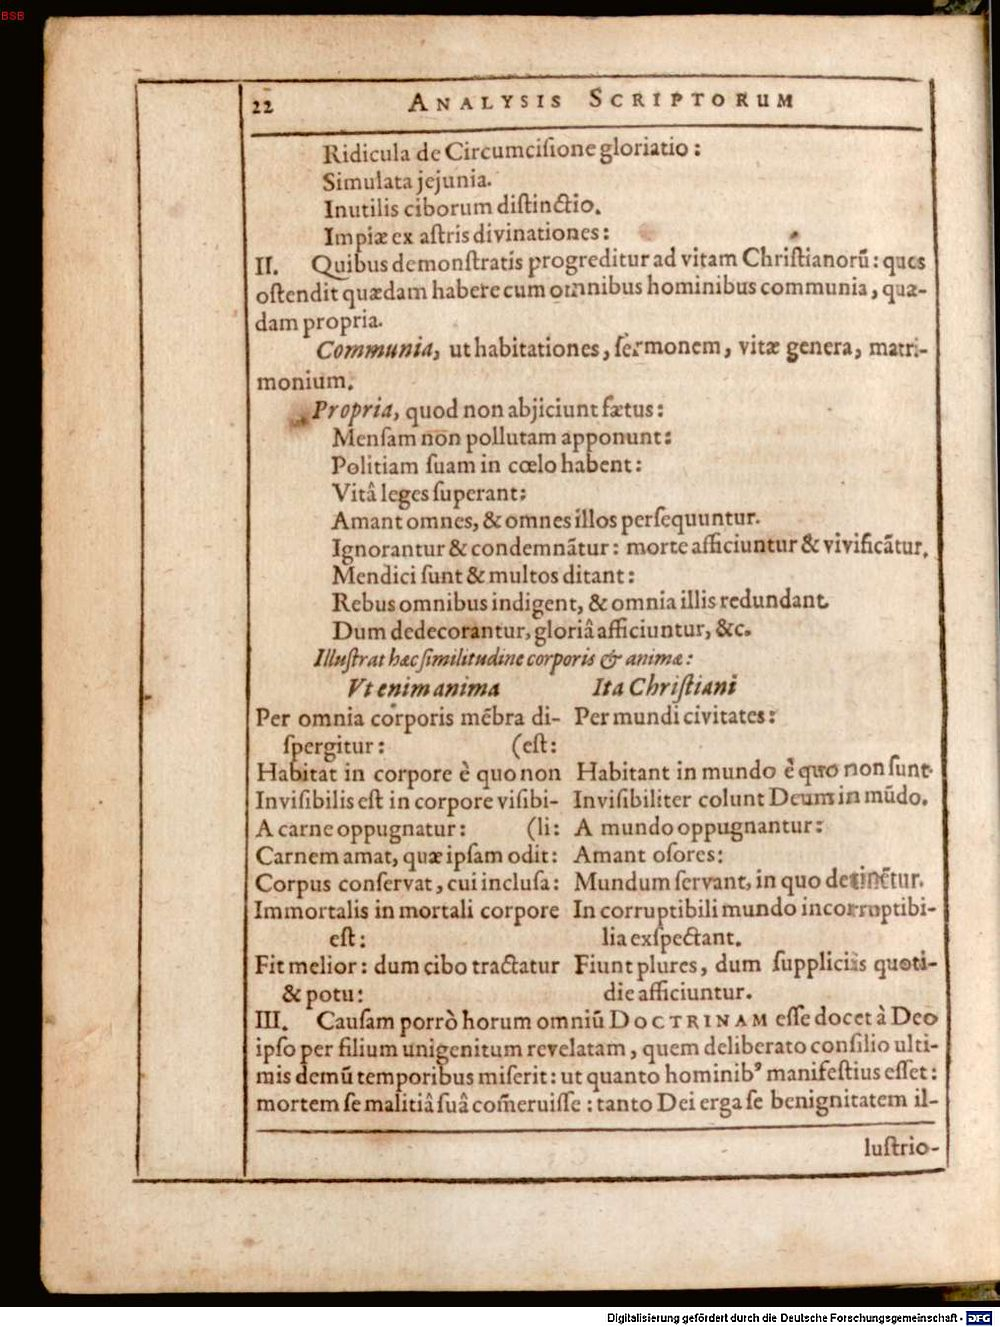 BSB
22 ANALYSIS SCRIPTORUM
Ridicula de Circumciſione gloriatio:
Simulata jejunia.
Inutilis ciborum diſtinctio.
Impiæ ex aſtris divinationes:
II. Quibus demonſtratis progreditur ad vitam Chriſtianorũ: quos
oſtendit quædam habere cum omnibus hominibus communia, quæ-
dam propria.
Communia, ut habitationes, ſermonem, vitæ genera, matri-
monium.
Propria, quod non abjiciunt fætus:
Menſam non pollutam apponunt:
Politiam ſuam in cœlo habent:
Vitâ leges ſuperant:
Amant omnes, & omnes illos perſequuntur.
Ignorantur & condemnãtur: morte afficiuntur & vivificãtur.
Mendici ſunt & multos ditant:
Rebus omnibus indigent, & omnia illis redundant.
Dum dedecorantur, gloriâ afficiuntur, &c.
Illuſtrat hæc ſimilitudine corporis & animæ:
Vt enim anima Ita Chriſtiani
Per omnia corporis mẽbra di- Per mundi civitates:
ſpergitur: (eſt:
Habitat in corpore è quo non Habitant in mundo è quo non ſunt.
Inviſibilis eſt in corpore viſibi- Inviſibiliter colunt Deum in mũdo.
A carne oppugnatur: (li: A mundo oppugnantur:
Carnem amat, quæ ipſam odit: Amant oſores:
Corpus conſervat, cui incluſa: Mundum ſervant, in quo detinẽtur.
Immortalis in mortali corpore In corruptibili mundo incorruptibi-
eſt: lia exſpectant.
Fit melior: dum cibo tractatur Fiunt plures, dum ſuppliciis quoti-
& potu: die afficiuntur.
III. Cauſam porrò horum omniũ DOCTRINAM eſſe docet à Deo
ipſo per filium unigenitum revelatam, quem deliberato conſilio ulti-
mis demũ temporibus miſerit: ut quanto hominibꝰ manifeſtius eſſet:
mortem ſe malitiâ ſuâ com̃eruiſſe: tanto Dei erga ſe benignitatem il-
luſtrio-
Digitalisierung gefördert durch die Deutsche Forschungsgemeinschaft - DFG